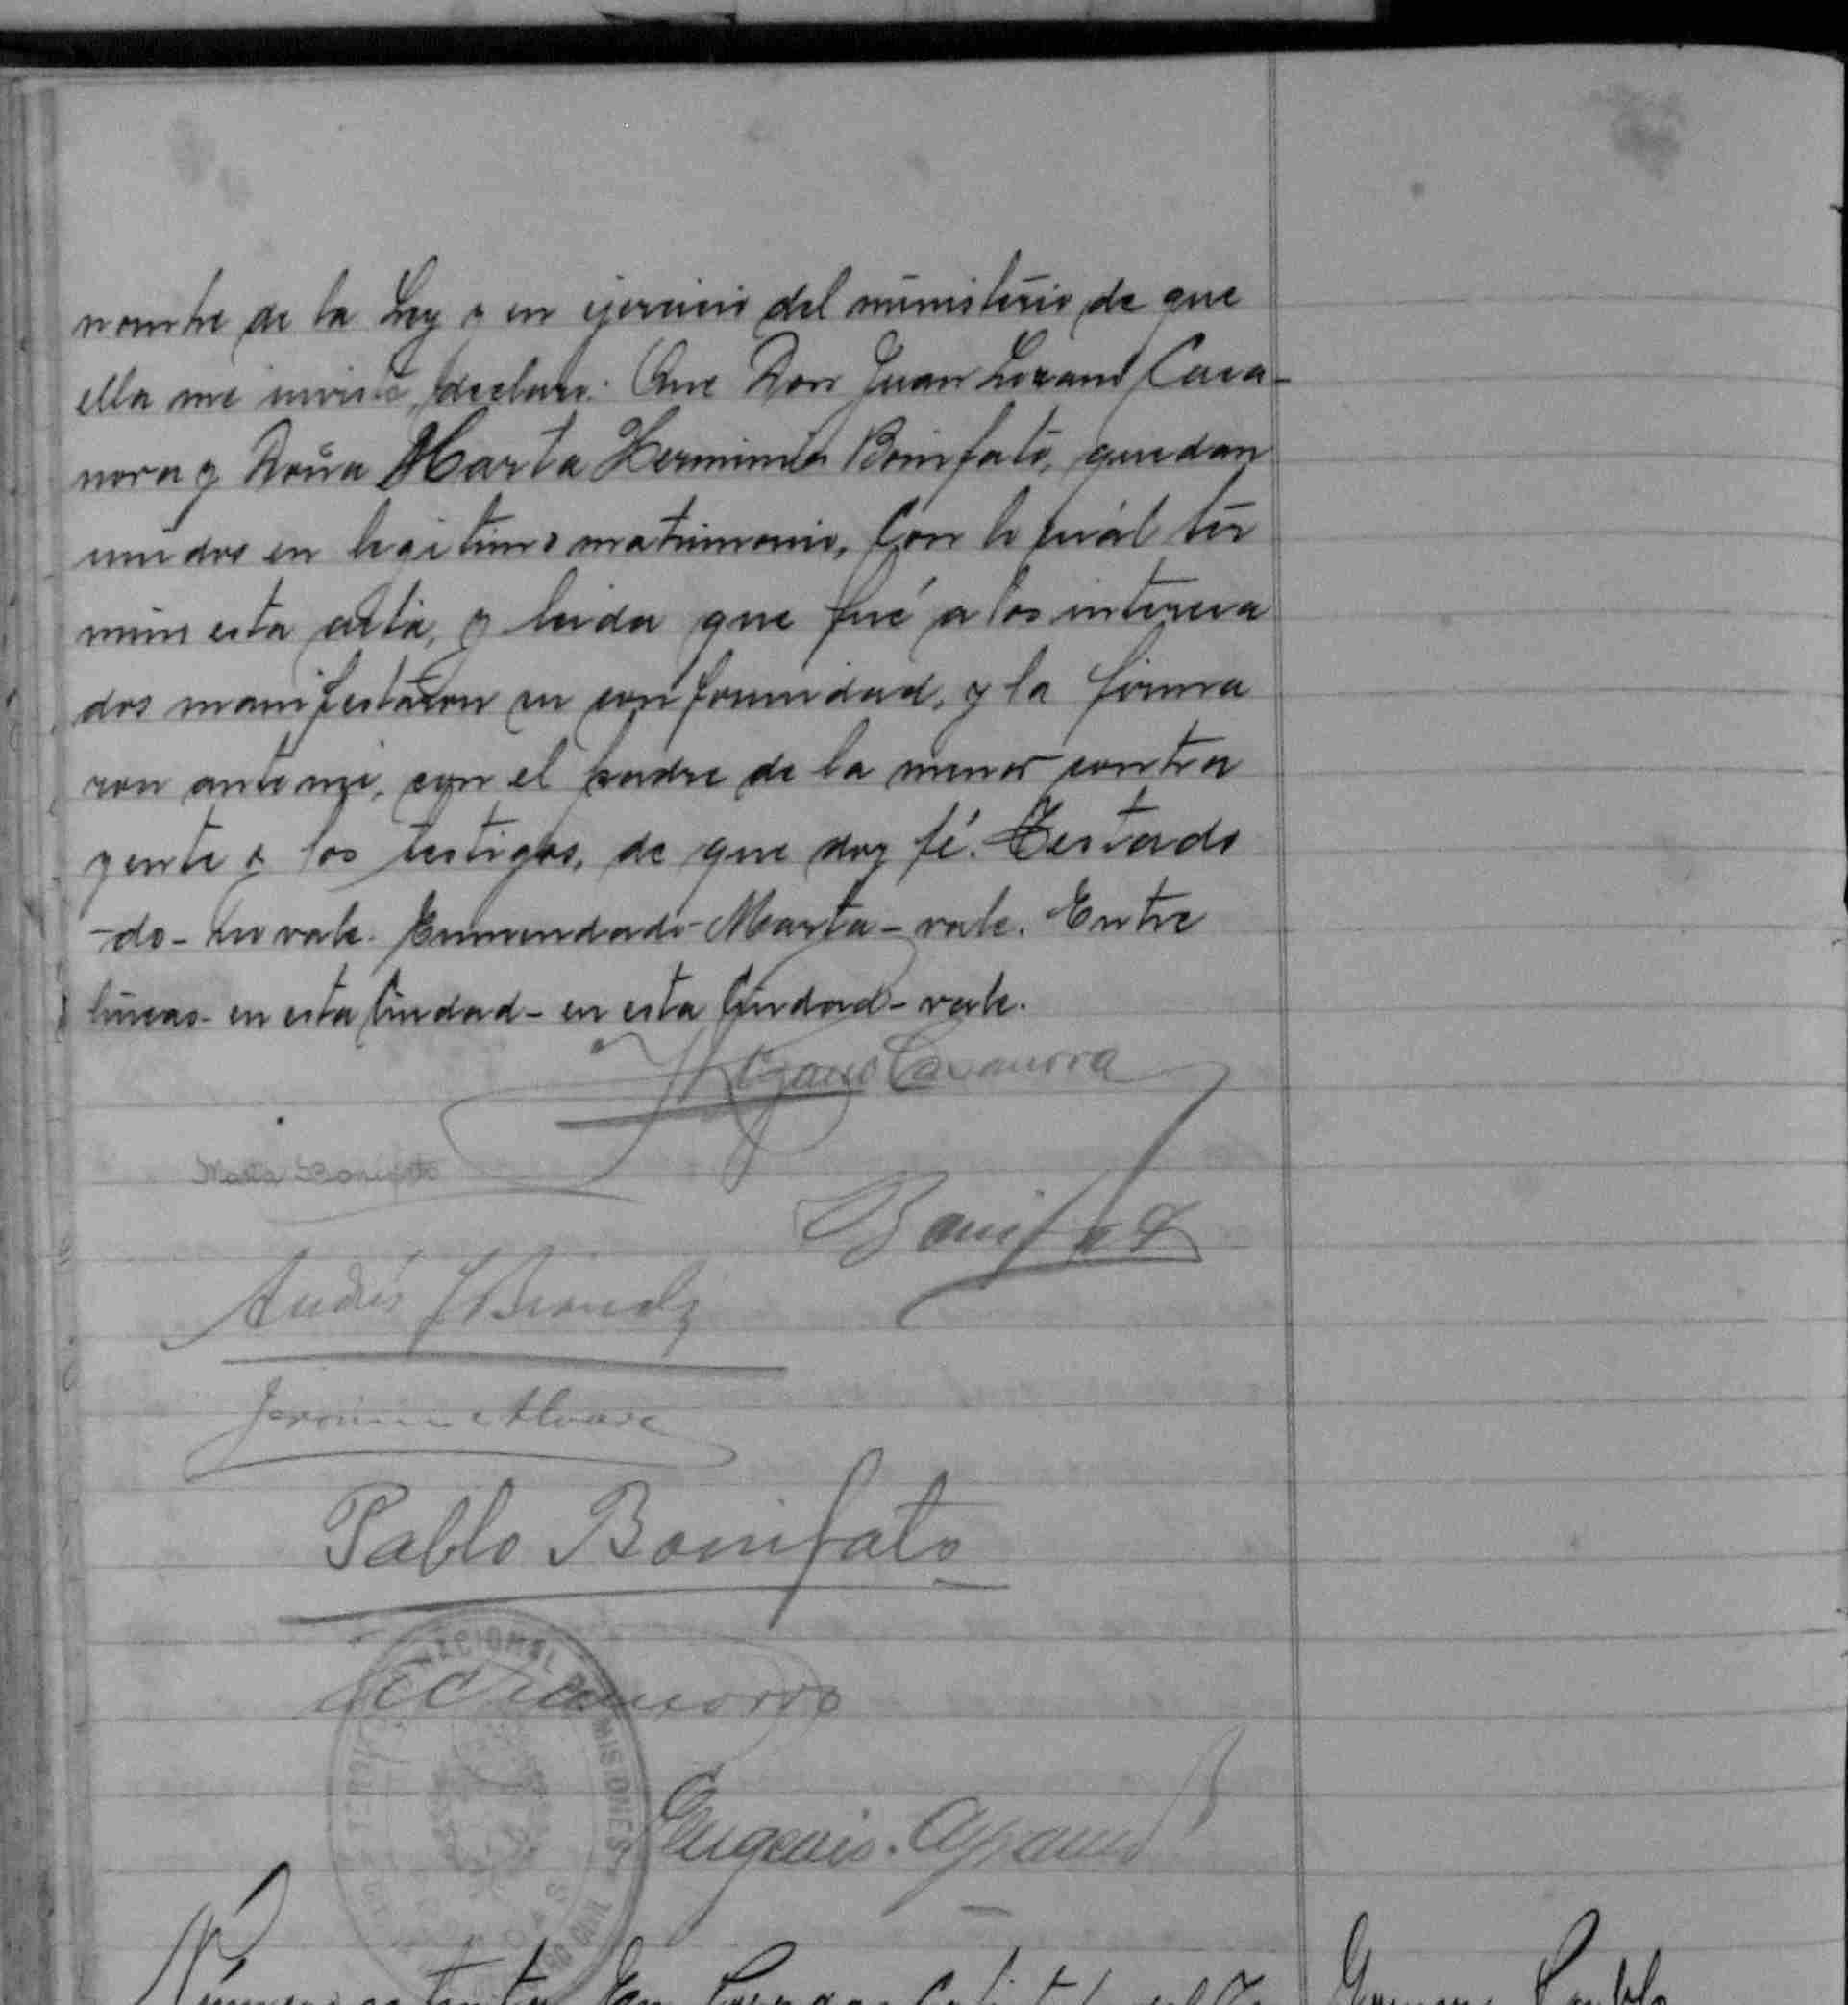 nombre de la Ley y en ejercicio del ministerio de que
ella me inviste, declaro: Que Don Juan Lozano Casa-
nova y Doña Marta Herminia Bonifato, quedan
unidos en legitimo matrimonio. Con lo cuál ter
mino esta acta, y leida que fué a los interesa
dos manifestaron su conformidad, y la firma
ron ante mi, con el padre de la menor contra
yente y los testigos, de que doy fé. Testado
-do- no vale. Enmendado- Marta - vale. Entre
lineas- en esta Ciudad - en esta Ciudad - vale.
Lozano Casanova
Marta Bonifato
Andrés
Pablo Bonifato
NACIONAL DE MISIONES
Eugenio